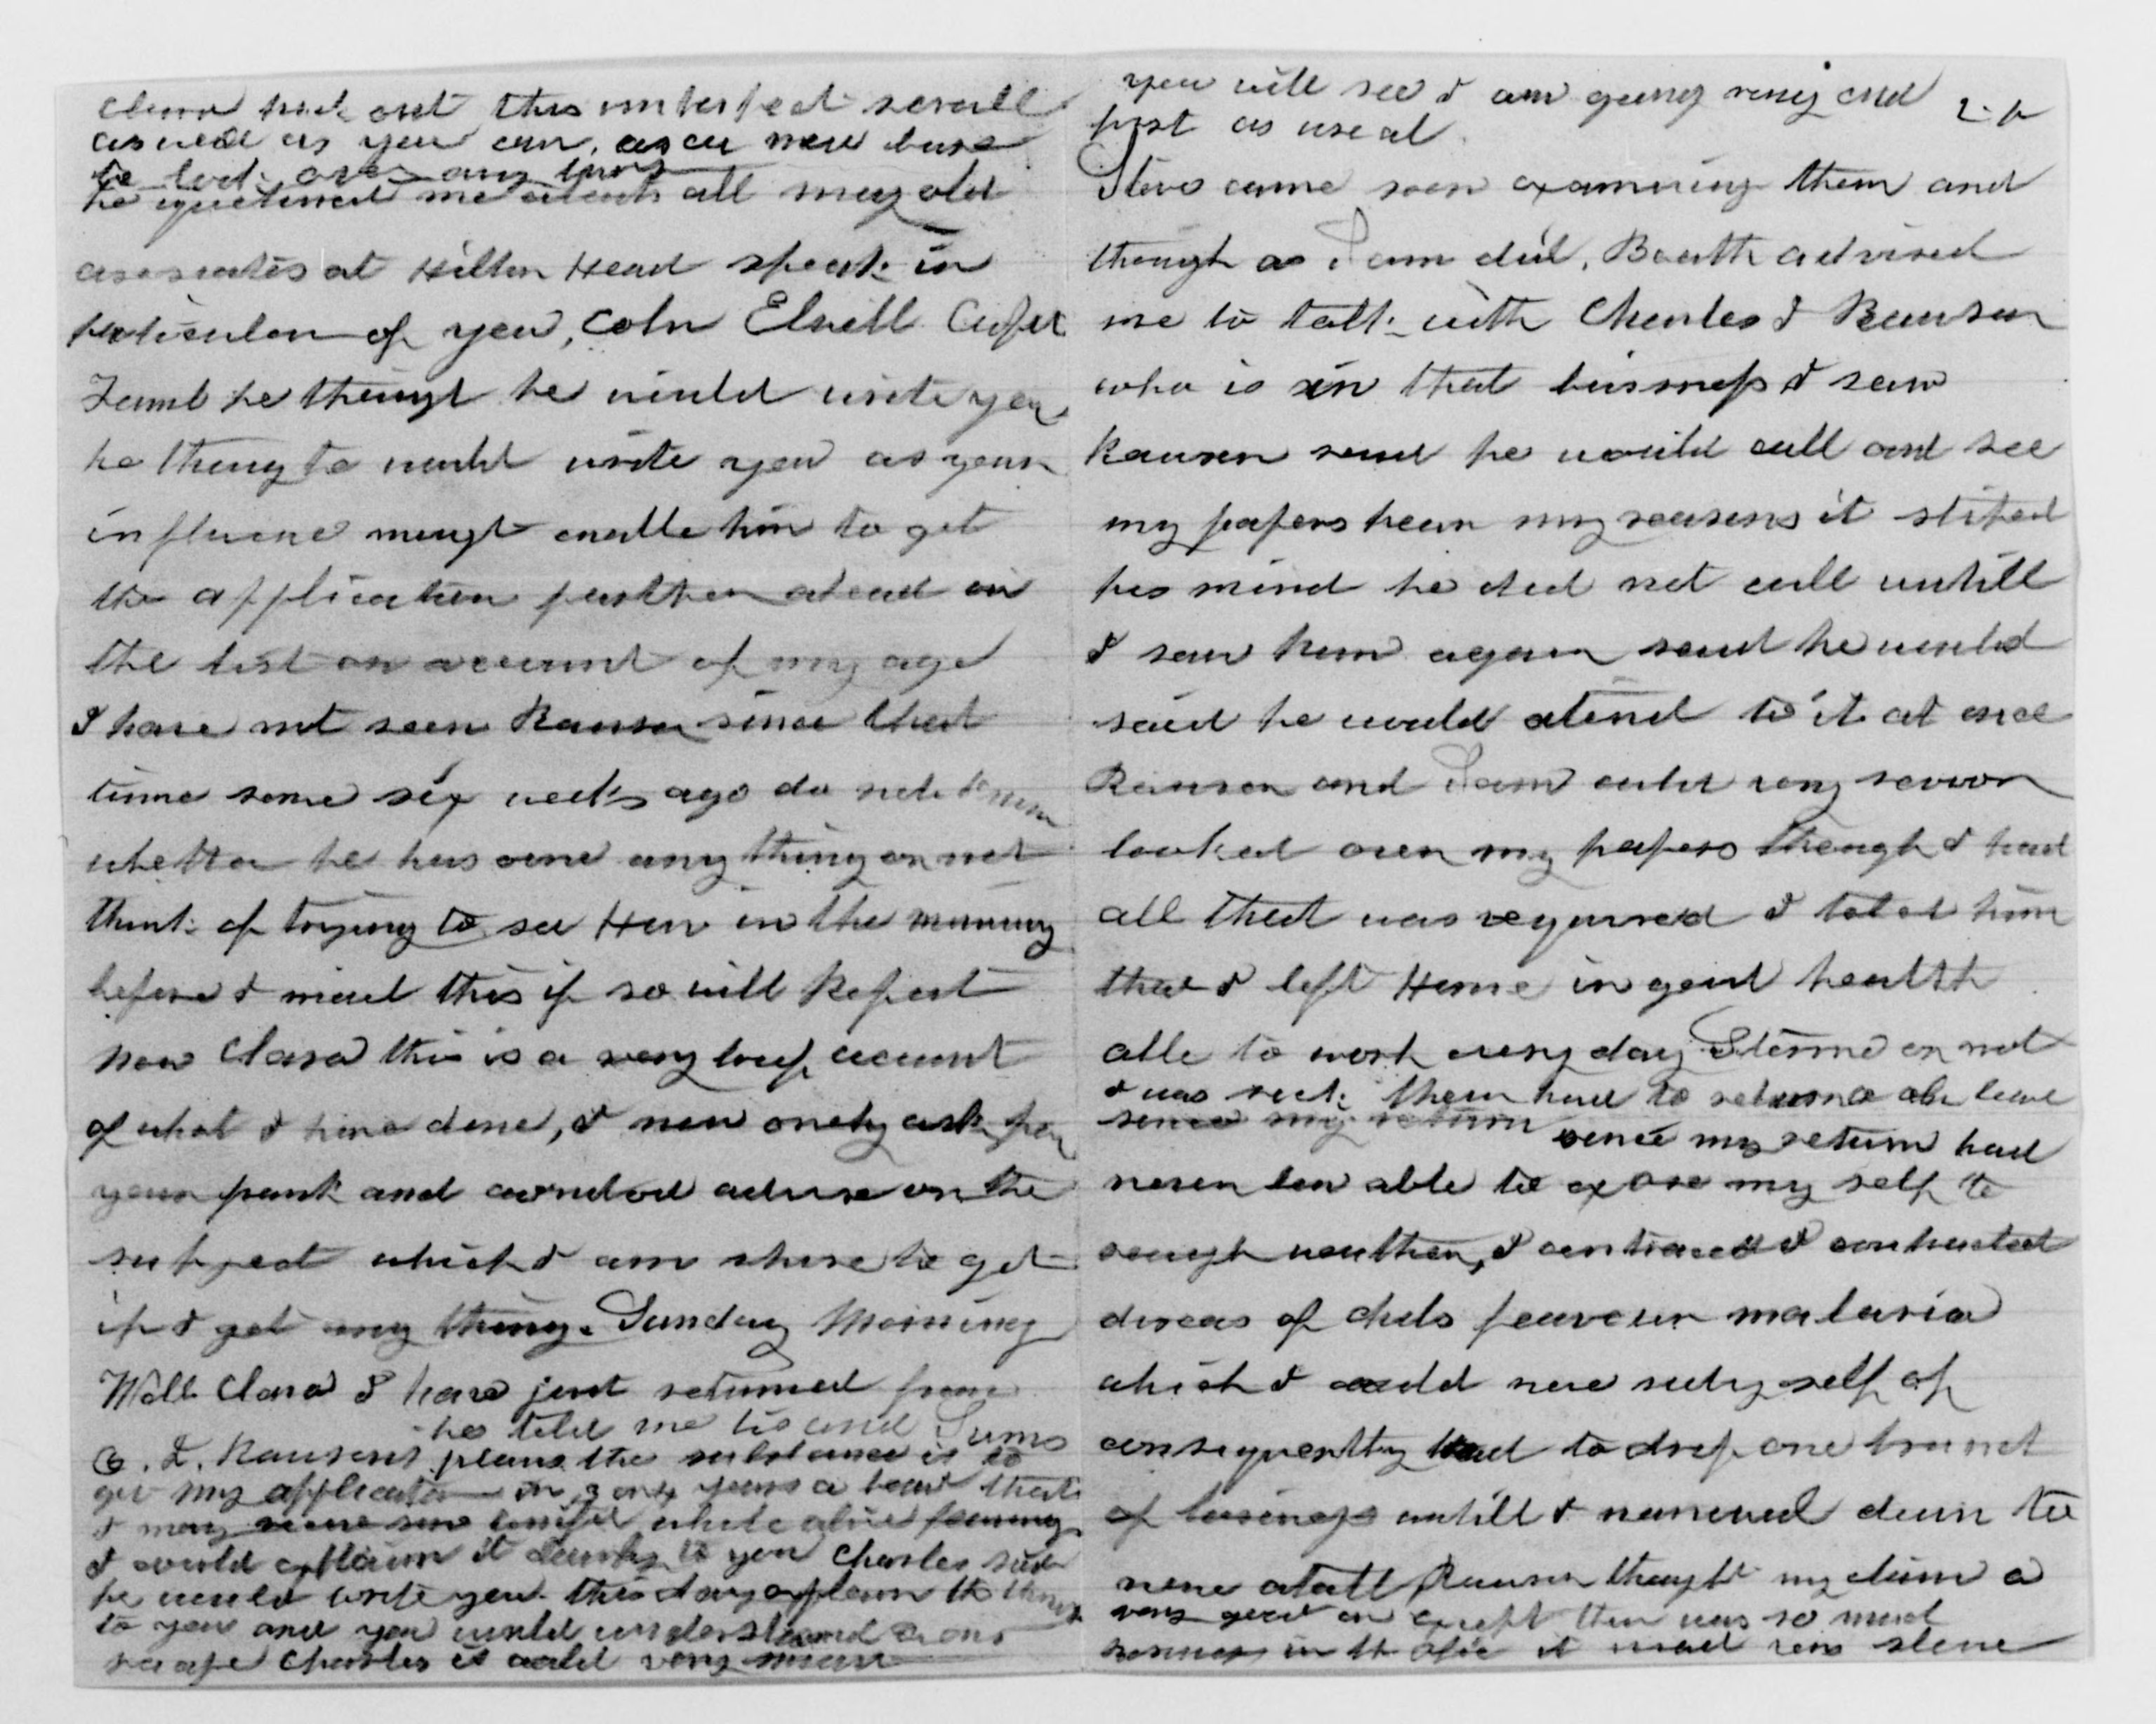 Clara pick out this imperfect scrall
as well as you can, as
over any
he questined me about all my old
assosiates at Hilton Head speak in
perticular of you, Coln Elwell Capt
Lamb he thougt he would write you
he thougt he would write you as your
influence mougt enable him to get
the application farther ahead on
the list on account of my age
I have not seen Ranson since that
time some six weeks ago do not know
whether he has done any thing or not
think of trying to see Him in the morning
before I mail this if so will Report
Now Clara this is a very brief account
of what I have done, I now onely ask for
your frank and candid advise on the
subject which I am shure to get
if I get any thing. Sunday Morning
Well Clara I have just returned from
he told me his and Sums
C. I. Ransons plans the substance is to
get my application in
I may some while alive
I would explain it to you Charles said
he would write you this day explain the thing
to you and you would understand
Charles is very

you will see I am going ring and
just as useal
Steve came soon examining them and
though as Sam did, Booth advised
me to talk with Charles I Ranson
who is in that business I saw
Ranson said he would call and see
my papers hear my reasons it sliped
his mind he did not call untill
I saw him again said he would
said he would atend to it at once
Ranson and Sam
looked over my papers though I had
all that was requared I told him
that I left Home in good health
able to work every day Storme or not
I was sick there had to return on leave
since my return since my return had
never ben able to expose my self to
rough weather, I contraced I contracted
diseas of chils feaver malaria
which I could neve self of
consequently had to drop one branch
of business untill I narrowed down to
none atall Ranson thought my claim a
very good on except ther was so much
in the ofice it mad slow